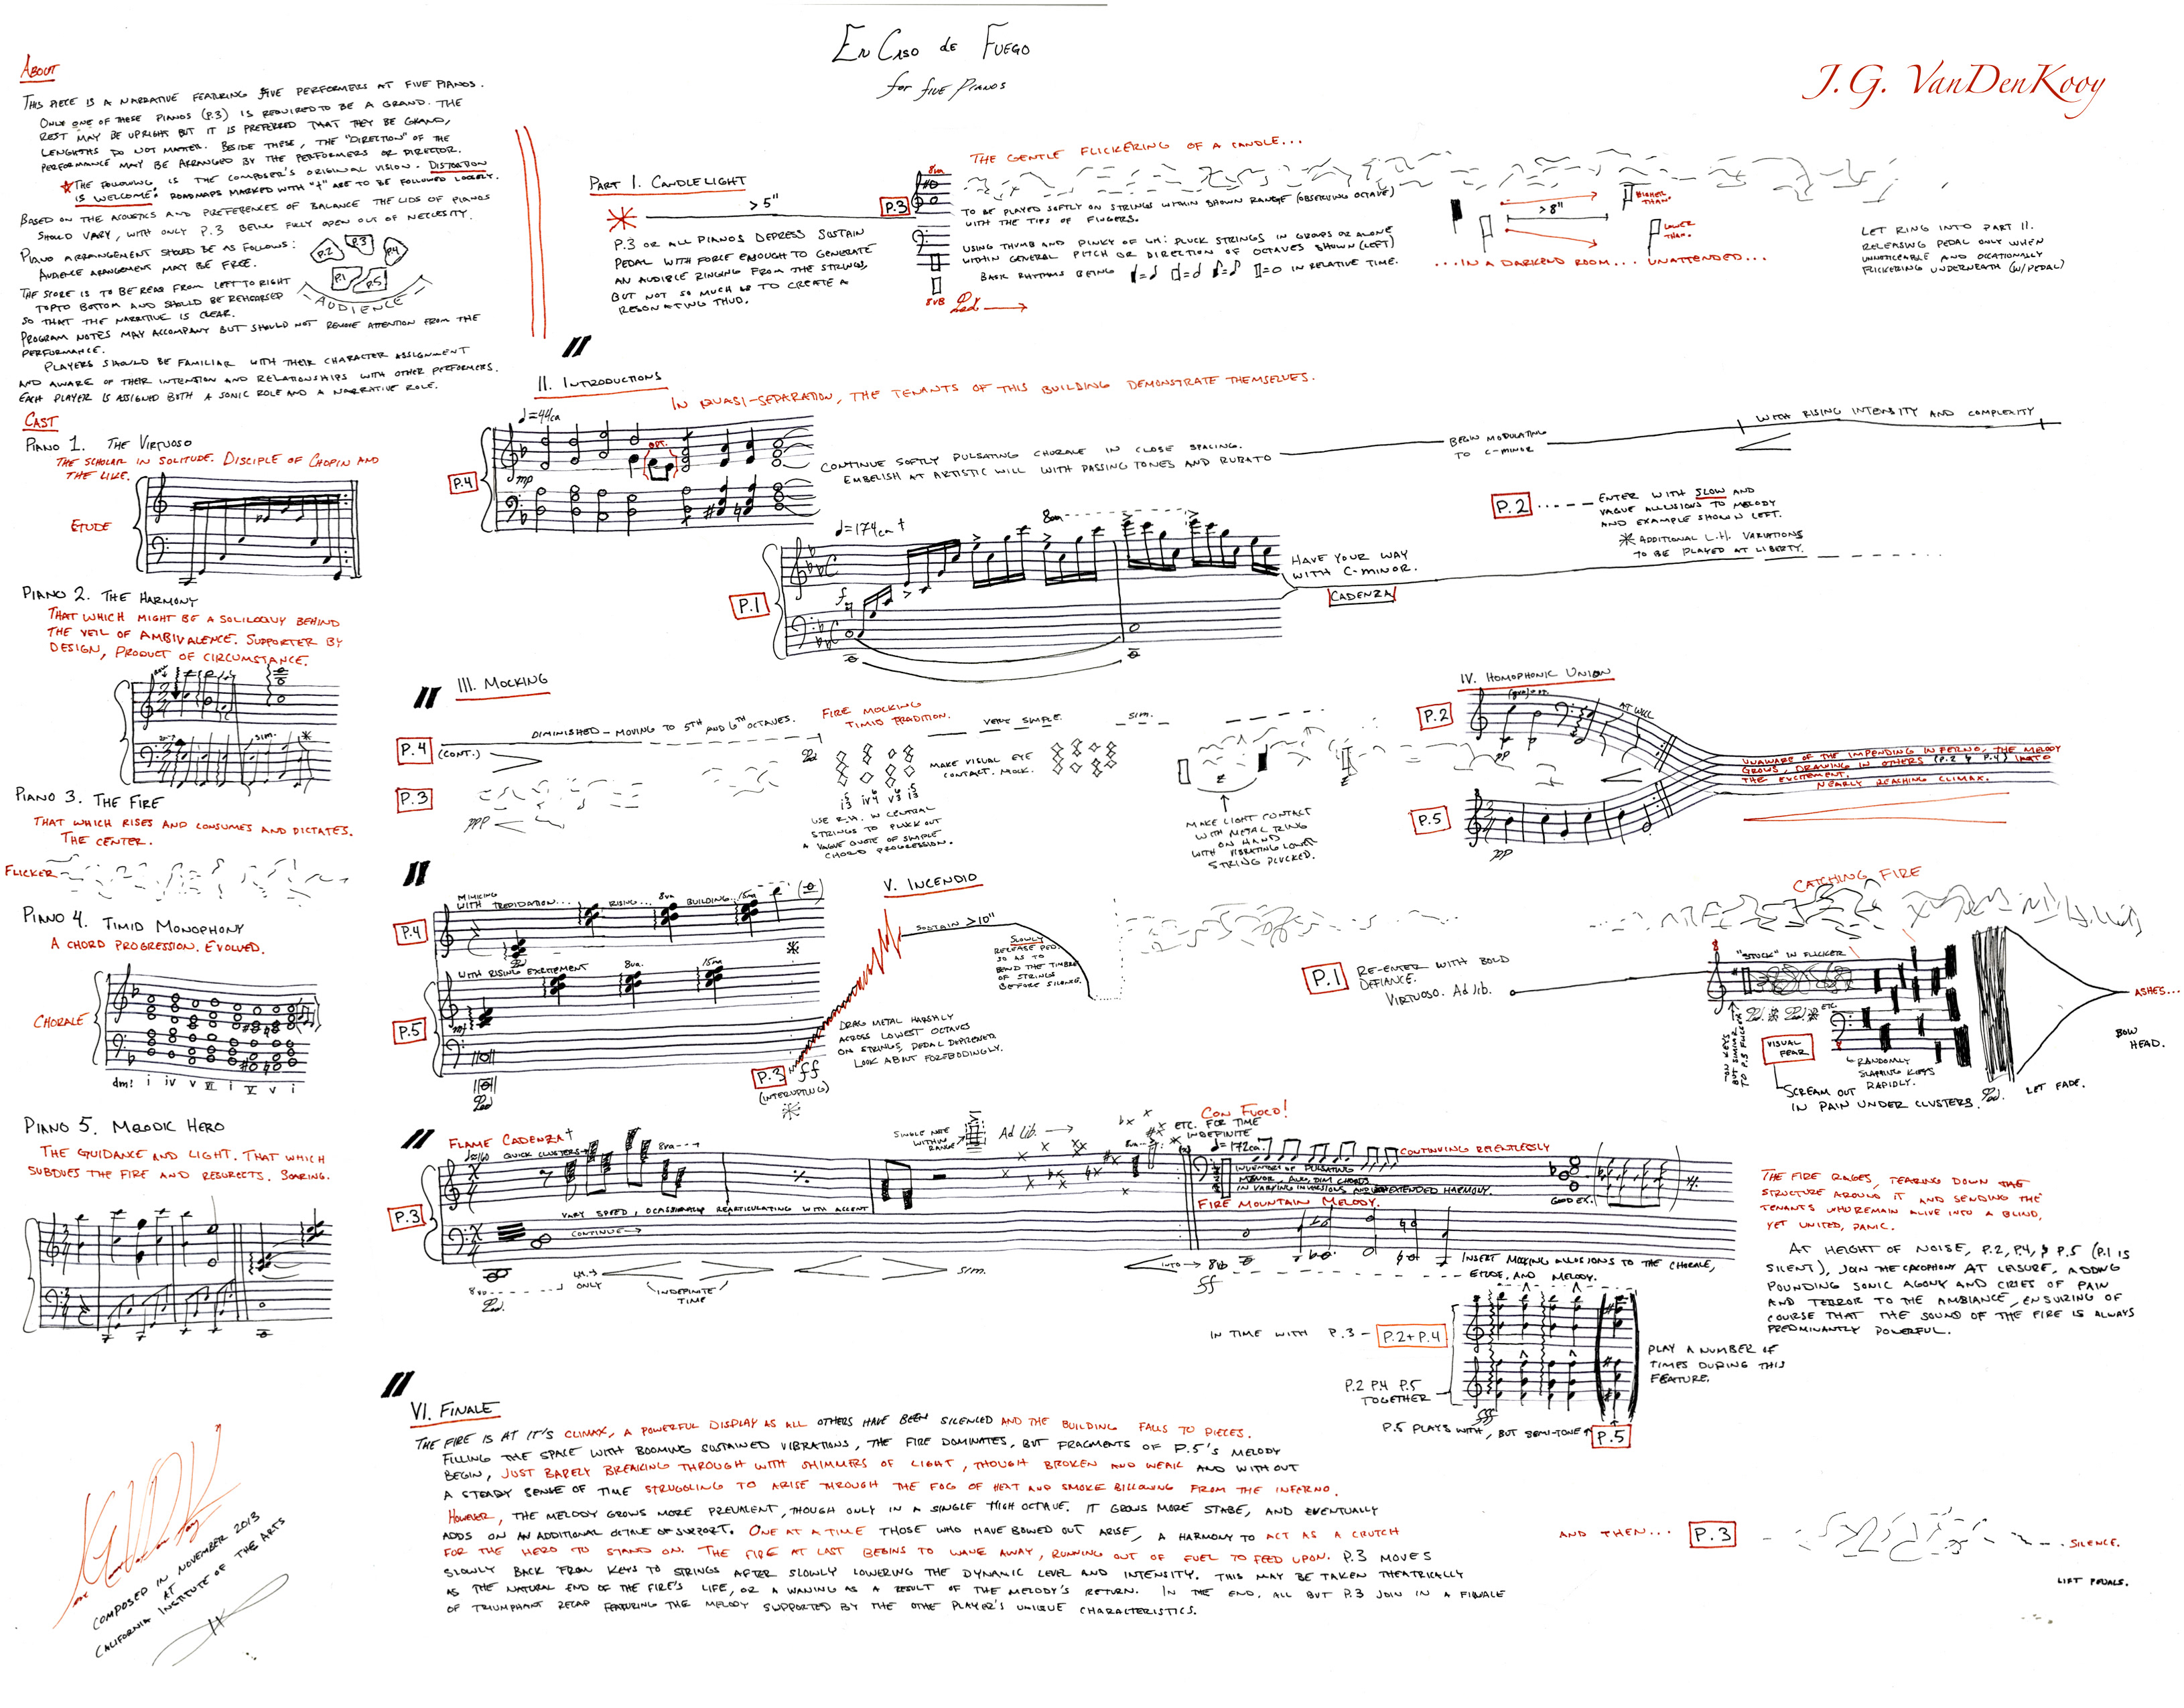 En Caso de Fuego
for five Pianos
J.G. VanDenKooy
About
This piece is a narrative featuring five performers at five pianos.
Only one of these pianos (P.3) is required to be a grand. The
rest may be upright but it is preferred that they be grand,
lengths do not matter. Beside these, the "direction" of the
performance may be arranged by the performers or director.
The following is the composer's original vision. Distortion
is welcome. Roadmaps marked with "†" are to be followed loosely.
Based on the acoustics and preferences of balance the lids of pianos
should vary, with only P.3 being fully open out of necessity.
Piano arrangement should be as follows:
Audience arangement may be free.
P.2 P.3 P.4
P.1 P.5
Audience
The score is to be read from left to right
top to bottom and should be rehearsed
so that the narrative is clear.
Program notes may accompany but should not remove attention from the
performance.
Players should be familiar with their character assignment
and aware of their intention and relationships with other performers.
Each player is assigned both a sonic role and a narrative role.
Cast
Piano 1. The Virtuoso
The scholar in solitude. Disciple of Chopin and
the like.
Etude
Piano 2. The Harmony
That which might be a soliloquy behind
the veil of ambivalence. Supporter by
design, product of circumstance.
sim.
Piano 3. The Fire
That which rises and consumes and dictates.
The center.
Flicker
Piano 4. Timid Monophony
A chord progression. Evolved.
Chorale
dm: i iv v VI i V v i
Piano 5. Melodic Hero
The guidance and light. That which
subdues the fire and resurects. Soaring.
Composed in November 2013
at
California Institute of the Arts
Part I. Candlelight
> 5"
P.3 or all pianos depress sustain
pedal with force enough to generate
an audible ringing from the strings,
but not so much as to create a
resonating thud.
The gentle flickering of a candle...
P.3
8va
To be played softly on strings within shown range (observing octave)
with the tips of fingers.
Using thumb and pinky of LH: pluck strings in groups or alone
within general pitch or direction of octaves shown (left)
Basic rhythms being in relative time.
8vb
Ped
> 8"
Higher
than.
Lower
than.
...in a darkend room... unattended...
Let ring into Part II.
Releasing pedal only when
unnoticeable and ocationally
flickering underneath (w/pedal)
II. Introductions
In quasi-separation, the tenants of this building demonstrate themselves.
♩=44ca
P.4
mp
opt.
Continue softly pulsating chorale in close spacing.
Embelish at artistic will with passing tones and rubato
Begin modulating
to c-minor
with rising intensity and complexity
♩=174ca †
P.1
f
8va
Have your way
with c-minor.
Cadenza
P.2
Enter with slow and
vague allusions to melody
and example shown left.
Additional L.H. variations
to be played at liberty.
III. Mocking
P.4
(cont.)
Diminished – moving to 5th and 6th octaves.
Fire mocking
timid tradition.
very simple.
sim.
P.3
ppp
Ped
Make visual eye
contact. Mock.
Use R.H. in central
strings to pluck out
a vague quote of simple
chord progression.
Make light contact
with metal ring
on hand
with vibrating lower
string plucked.
IV. Homophonic Union
P.2
at will
pp
P.5
pp
Unaware of the impending inferno, the melody
grows, drawing in others (P.2 & P.4) into
the excitement.
Nearly reaching climax.
P.4
Mimicing
with trepidation... rising... 8va building... 15ma
P.5
with rising excitement 8va. 15ma
mf
Ped
V. Incendio
P.3
(interupting)
ff
Sustain >10"
Drag metal harshly
across lowest octaves
on strings, pedal depressed
Look about forebodingly.
Slowly
release ped.
so as to
bend the timbre
of strings
before silence.
P.1
Re-enter with bold
defiance.
Virtuoso. Ad lib.
Catching fire
"Stuck" in flicker
on keys
but similar
to P.3 flicker
Ped. Ped. etc.
Visual
fear
Randomly
slapping keys
rapidly.
Scream out
in pain under clusters.
Ped.
Let fade.
Ashes...
Bow
head.
Flame Cadenza†
♩=160 quick clusters
8va
P.3
vary speed, ocassionally rearticulating with accent
continue
8vb
Ped.
L.H.
only
indefinite
time
sim.
Single note
within
range
Ad Lib.
etc. for time
indefinite
Con Fuoco!
♩=172ca.
Continuing relentlessly
Inventory of pulsating
minor, aug, dim chords
in varying inversions and extended harmony.
Fire Mountain Melody.
Good ex.
into 8vb
ff
Insert mocking allusions to the chorale,
etude, and melody.
In time with P.3 – P.2+P.4
P.2 P.4 P.5
together
fff
P.5 plays with, but semi-tone ↑ P.5
Play a number of
times during this
feature.
The fire rages, tearing down the
structure around it and sending the
tenants who remain alive into a blind,
yet united, panic.
At height of noise, P.2, P.4, & P.5 (P.1 is
silent), join the cacophony at leisure, adding
pounding sonic agony and cries of pain
and terror to the ambiance, ensuring of
course that the sound of the fire is always
predminantly powerful.
VI. Finale
The fire is at it's climax, a powerful display as all others have been silenced and the building falls to pieces.
Filling the space with booming sustained vibrations, the fire dominates, but fragments of P.5's melody
begin, just barely breaking through with shimmers of light, though broken and weak and without
a steady sense of time struggling to arise through the fog of heat and smoke billowing from the inferno.
However, the melody grows more prevalent, though only in a single high octave. It grows more stabe, and eventually
adds on an additional octave of support. One at a time those who have bowed out arise, a harmony to act as a crutch
for the hero to stand on. The fire at last begins to wane away, running out of fuel to feed upon. P.3 moves
slowly back from keys to strings after slowly lowering the dynamic level and intensity. This may be taken theatrically
as the natural end of the fire's life, or a waning as a result of the melody's return. In the end, all but P.3 join in a finale
of triumphant recap featuring the melody supported by the othe player's unique characteristics.
And then... P.3
Silence.
Lift pedals.